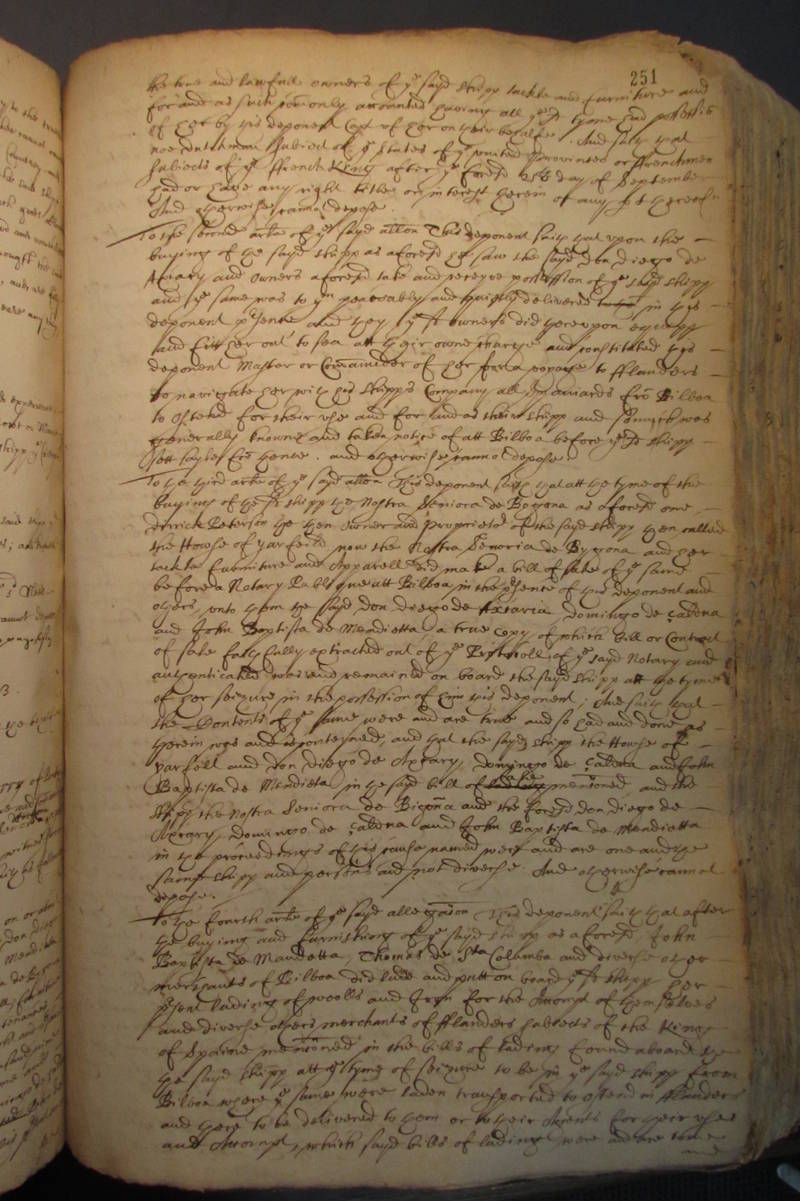 251
the true and lawfull owners of ye sayd shipp tackle and furniture and
for and as such comonly accounted having all ye tyme had possession
of her by this deponent Capt of her on their behalfe. And saith that
noe dutchman subiect of ye States of ye united provinces or ffrenchmen
subiects of ye ffrench King after ye foresd day of September
had or have any right tytle or interest therein or any pt thereof
And otherwise cannot depose.
To the second arle of ye sayd allon This deponent saith that upon the
buying of the sayd shipp as aforesd hee saw the sayd don diego de
Axtary and owners aforesd take and receyve possession of ye sayd shipp
and ye same was to ym peaceably and quietly delivered in this
deponents presence and they ye sd owners did thereupon equipp
and fitt her out to sea att their owne charge and constituted this
deponent Master or Comander of her for a voyage to fflanders
to navigate her with his shipps Company all Spaniards fro Bilboa
to Ostend for their use and for and as their shipp and soe much was
generally knowne and taken notice of att Bilboa before ye sd shipp
sett sayle fro thence. and otherwise cannot depose
To the third arle of ye sayd allon This deponent saith that att the tyme of the
buying of the sd shipp the Nostra Seniora de Bogona as aforesd one
derrick Peterson the then owner and proprietor of the sayd shipp then called
the Howse of yarfeild now the Nostra Senoria de Bygona and her
tackle furniture and apparell did make a bill of sale of ye same
before a Notary Publique att Bilboa in the presence of this deponent and
others, unto them the sayd don diego de Axtaria domingo de Cadena
and John Baptista de Mendietta a true copy of which bill or Contract
of sale faithfully extracted out of ye Prothcoll of ye sayd Notary and
authenticated was and remained on board the sayd shipp att the tyme
of her seizure in the possession of him this deponent; And saith that
the Contents of ye same were and are true and so had and done as
therein was and is conteyned, and that the sayd shipp the Howse of
yarfell and don diego de Axtary, domingo de Cadena and John
Baptista de Mendieta in the sayd bill of mentioned and the
shipp the Nostra Seniora de Bigona and the foresd don diego de
Axtary domingo de Cadena and John Baptista de Mendietta
in the proceedings of this cause named were and are one and the
same shipp and persons and not diverse. And otherwise cannot
depose.
To the fourth arle of ye sayd allegation this deponent saith that after
the buying and furnishing of ye sayd shipp as aforesd John
Baptista de Mandetta, Thomas de Sta Colamba and diverse other
merchants of Bilboa did lade and putt on board ye sd shipp her
present lading of woolls and Iron for the Accompt of themselves
and diverse others merchants of fflanders subiects of the King
of Spaine mentioned in the bills of lading found aboard the
the sayd shipp att ye tyme of seizure to be in ye sayd shipp from
Bilboa where ye same were laden transported to Ostend in fflanders
and there to be delivered to them or to their Agents for their use
and Accompt, which sayd bills of lading were and are true
and